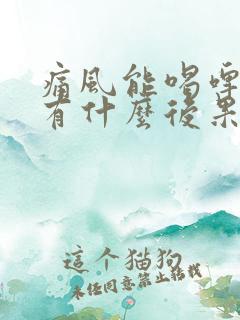 痛風能喝啤
有什麼後果
這个猫狗
未经同意禁止转载